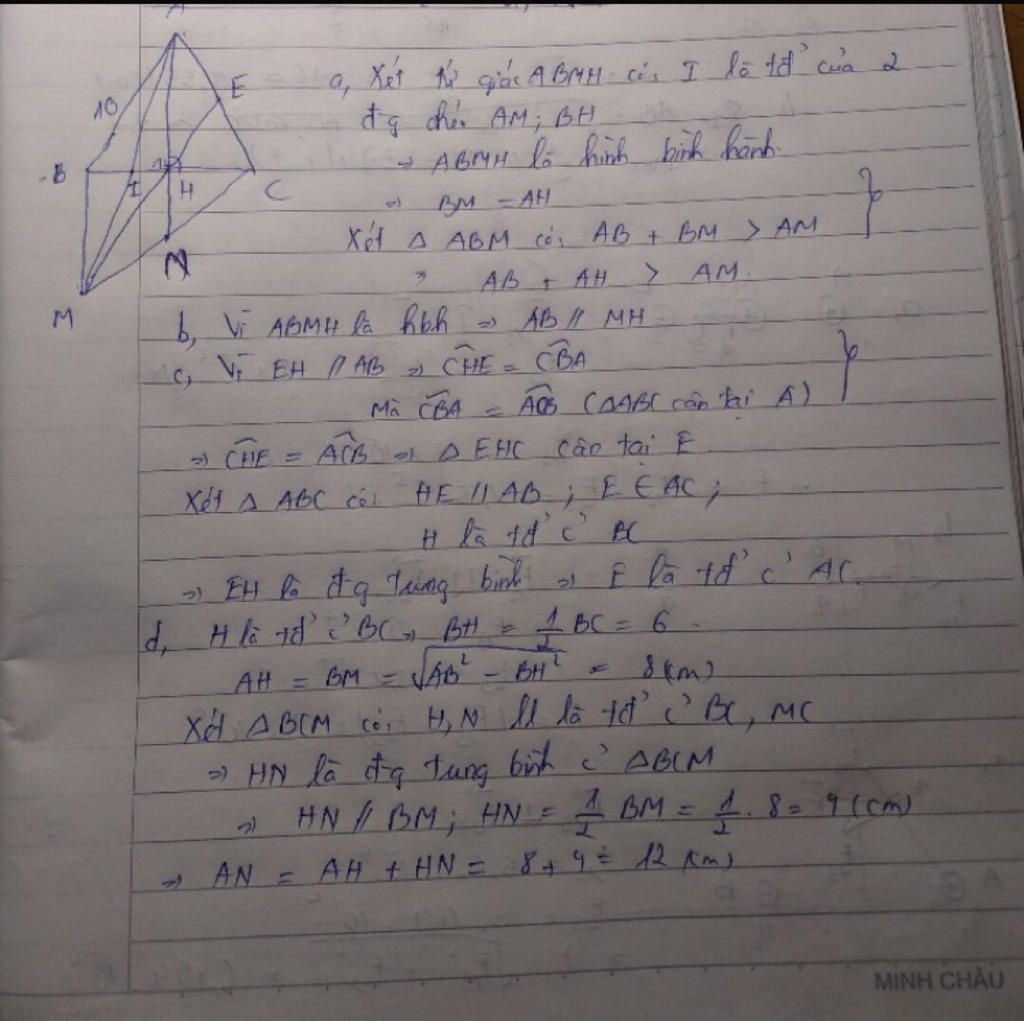 A
10
E
B
I
H
C
N
M
a, Xét tứ giác ABMH có: I là tđ' của 2
đ-g chéo AM; BH
=> ABMH là hình bình hành.
=> BM = AH
Xét Δ ABM có: AB + BM > AM
=> AB + AH > AM.
b, Vì ABMH là hbh => AB // MH
c, Vì EH // AB => \widehat{CHE} = \widehat{CBA}
Mà \widehat{CBA} = \widehat{ACB} (ΔABC cân tại A)
=> \widehat{CHE} = \widehat{ACB} => Δ EHC cân tại E
Xét Δ ABC có: HE // AB ; E ∈ AC ;
H là tđ' c' BC
=> EH là đ-g trung bình => E là tđ' c' AC.
d, H là tđ' c' BC => BH = 1/2 BC = 6 .
AH = BM = √(AB² - BH²) = 8(cm)
Xét ΔBCM có: H, N ll là tđ' c' BC, MC
=> HN là đ-g tung bình c' ΔBCM
=> HN // BM ; HN = 1/2 BM = 1/2 . 8 = 4 (cm)
=> AN = AH + HN = 8 + 4 = 12 (cm)
MINH CHÂU